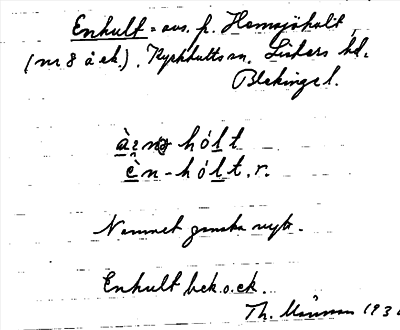 Enhult = avs. fr. Hemsjöholt,
(nr 8 å ek.). Kyrkhults sn. Listers hd.
Blekinge l.
hólt
èn-hólt. r.
Namnet ganska nytt.
Enhult bek. o. ek.
Th. 193